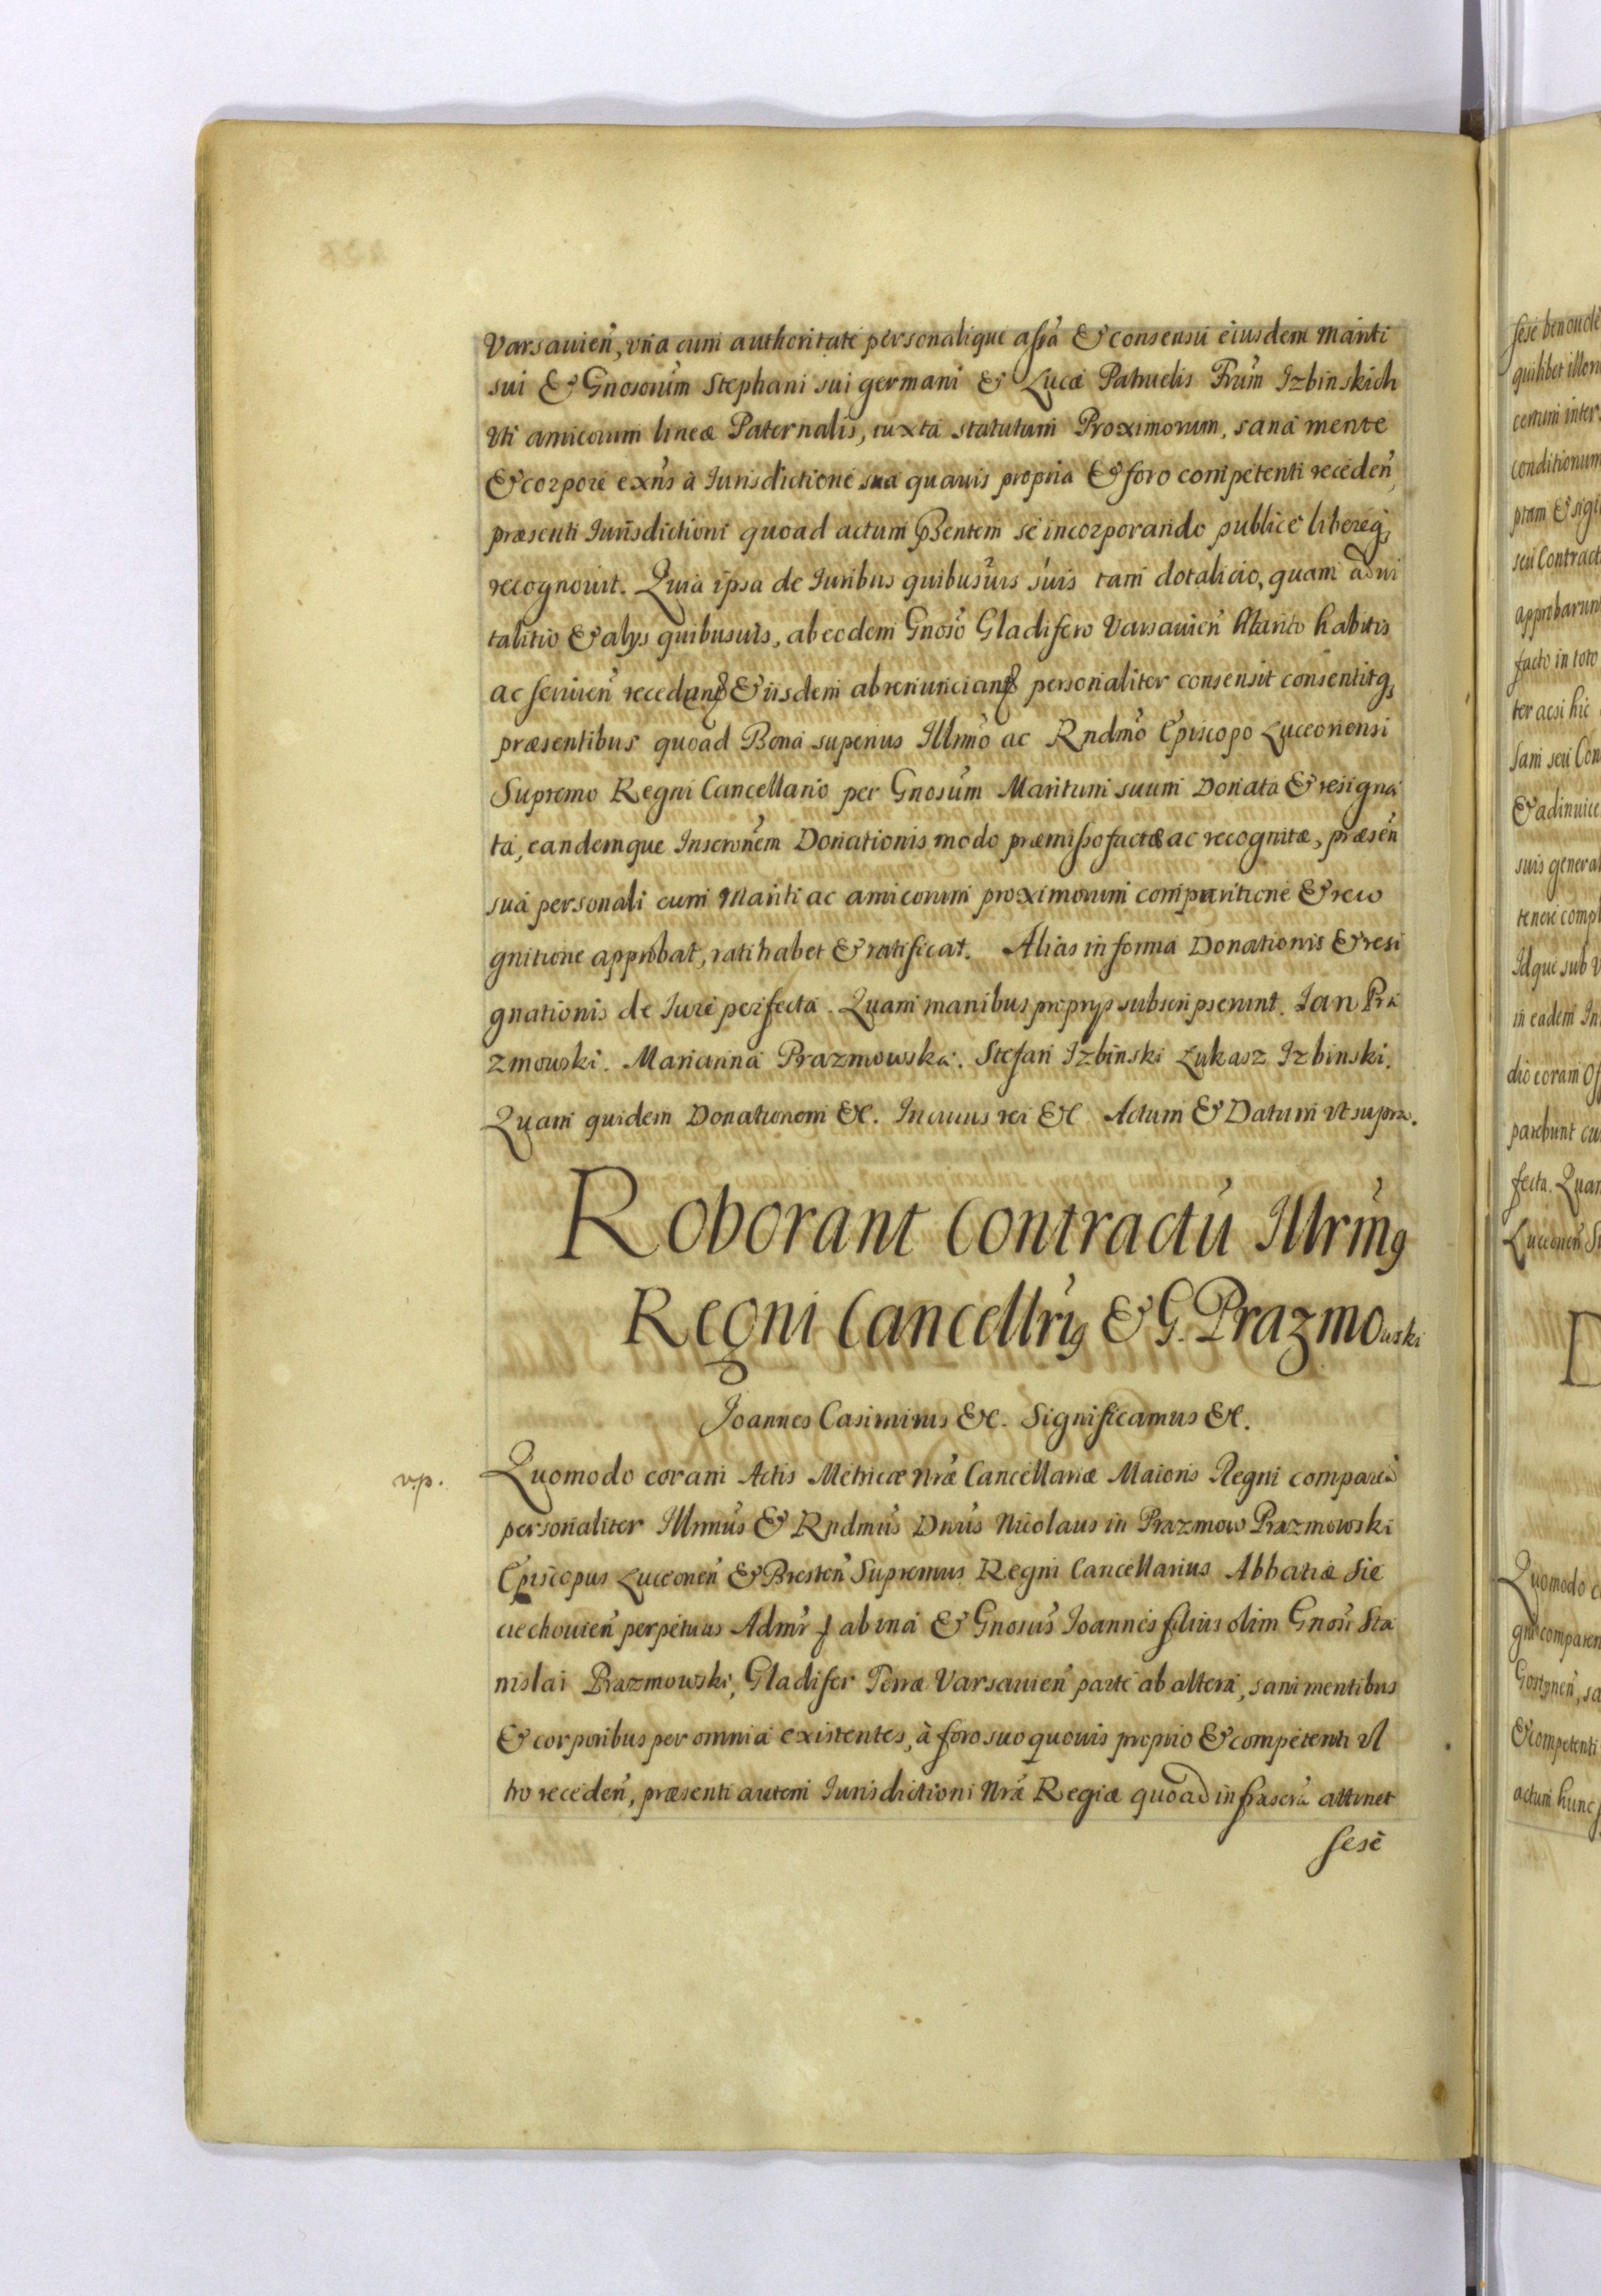 Varsauień, vńa cum authoritate personalique assã & consensu eiusdem Mariti
sui & Gnosorum Stephani sui germani & Lucæ Patruelis Frum Izbinskich
vti amicorum lineæ Paternalis, iuxta statutum Proximorum, sana mente
& corpore exńs à Iurisdictione sua quauis propria & foro competenti receden,
præsenti Iurisdictioni quoad actum pŝentem se incorporando publice libereq;
recognouit. Quia ipsa de Iuribus quibusuis suis tam dotalicio, quam adui
talitio & alys quibusuis, ab eodem Gnoso Gladifero Varsauień Marito habitis
ac seruień recedens & iisdem abrenuncians personaliter consensit consentitq;
præsentibus quoad Bona superius Illrmo ac Rndmo Episcopo Luceoriensi
Supremo Regni Cancellario per Gnosum Maritum suum Donata & resigna
ta, eandemque Inscronem Donationis modo præmisso factæ ac recognitæ, præseń
sua personali cum Mariti ac amicorum proximorum comparitione & reco
gnitione approbat, ratihabet & ratificat. Alias in forma Donationis & resi
gnationis de Iure perfecta. Quam manibus proprys subscripserunt. Jan Pra
zmowski. Marianna Prazmowska. Stefan Izbinski Lukasz Izbinski.
Quam quidem Donationem &c. In cuius rei &c Actum & Datum vt supra.
Roborant Contractũ Illrmg
Regni Cancellrig & G. Prazmowski
Joannes Casimirus &c. Significamus &c.
v.p.
Quomodo coram Actis Metricæ Nræ Cancellariæ Maioris Regni compareñ
personaliter Illrmus & Rndmus Dnus Nicolaus in Prazmow Prazmowski
Episcopus Luceorień & Bresteń Supremus Regni Cancellarius Abbatiæ Sie
ciechouień perpetuus Admr ab vna & Gnosus Joannes filius olim Gnosi Sta
nislai Prazmowski, Gladifer Terræ Varsauień parte ab altera, sani mentibus
& corporibus per omnia existentes, à foro suo quouis proprio & competenti vl
tro recedeń, præsenti autem Iurisdictioni Nræ Regiæ quoad infrascra attinet
sese